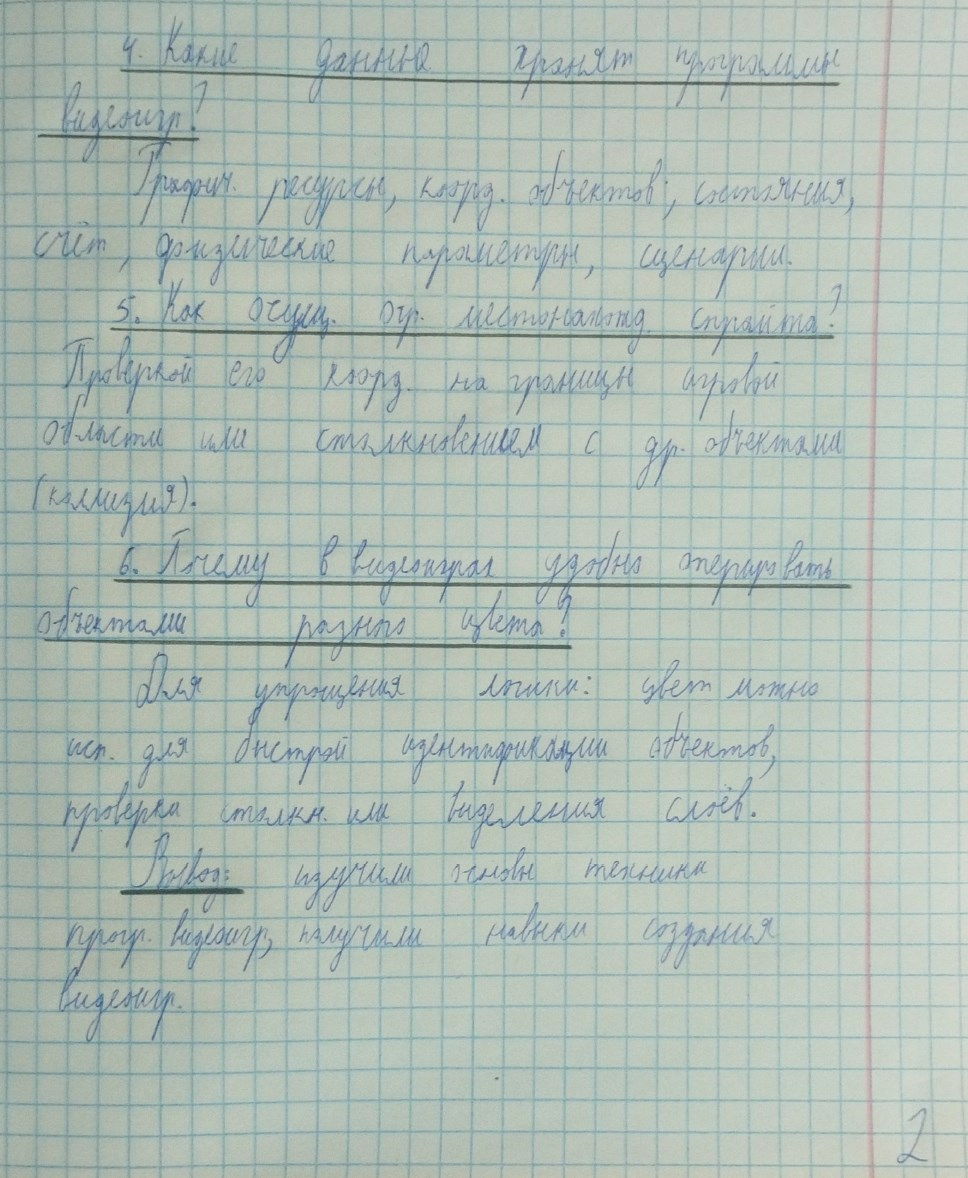 4. Какие данные хранят программы
видеоигр?
Графич. ресурсы, коорд. объектов, состояния,
счёт, физические параметры, сценарии.
5. Как осущ. огр. местонахожд. спрайта?
Проверкой его коорд. на границы игровой
области или столкновением с др. объектами
(коллизия).
6. Почему в видеоиграх удобно оперировать
объектами разного цвета?
Для упрощения логики: цвет можно
исп. для быстрой идентификации объектов,
проверки столкн. или выделения слоёв.
Вывод: изучили основы техники
прогр. видеоигр, получили навыки создания
видеоигр.
2